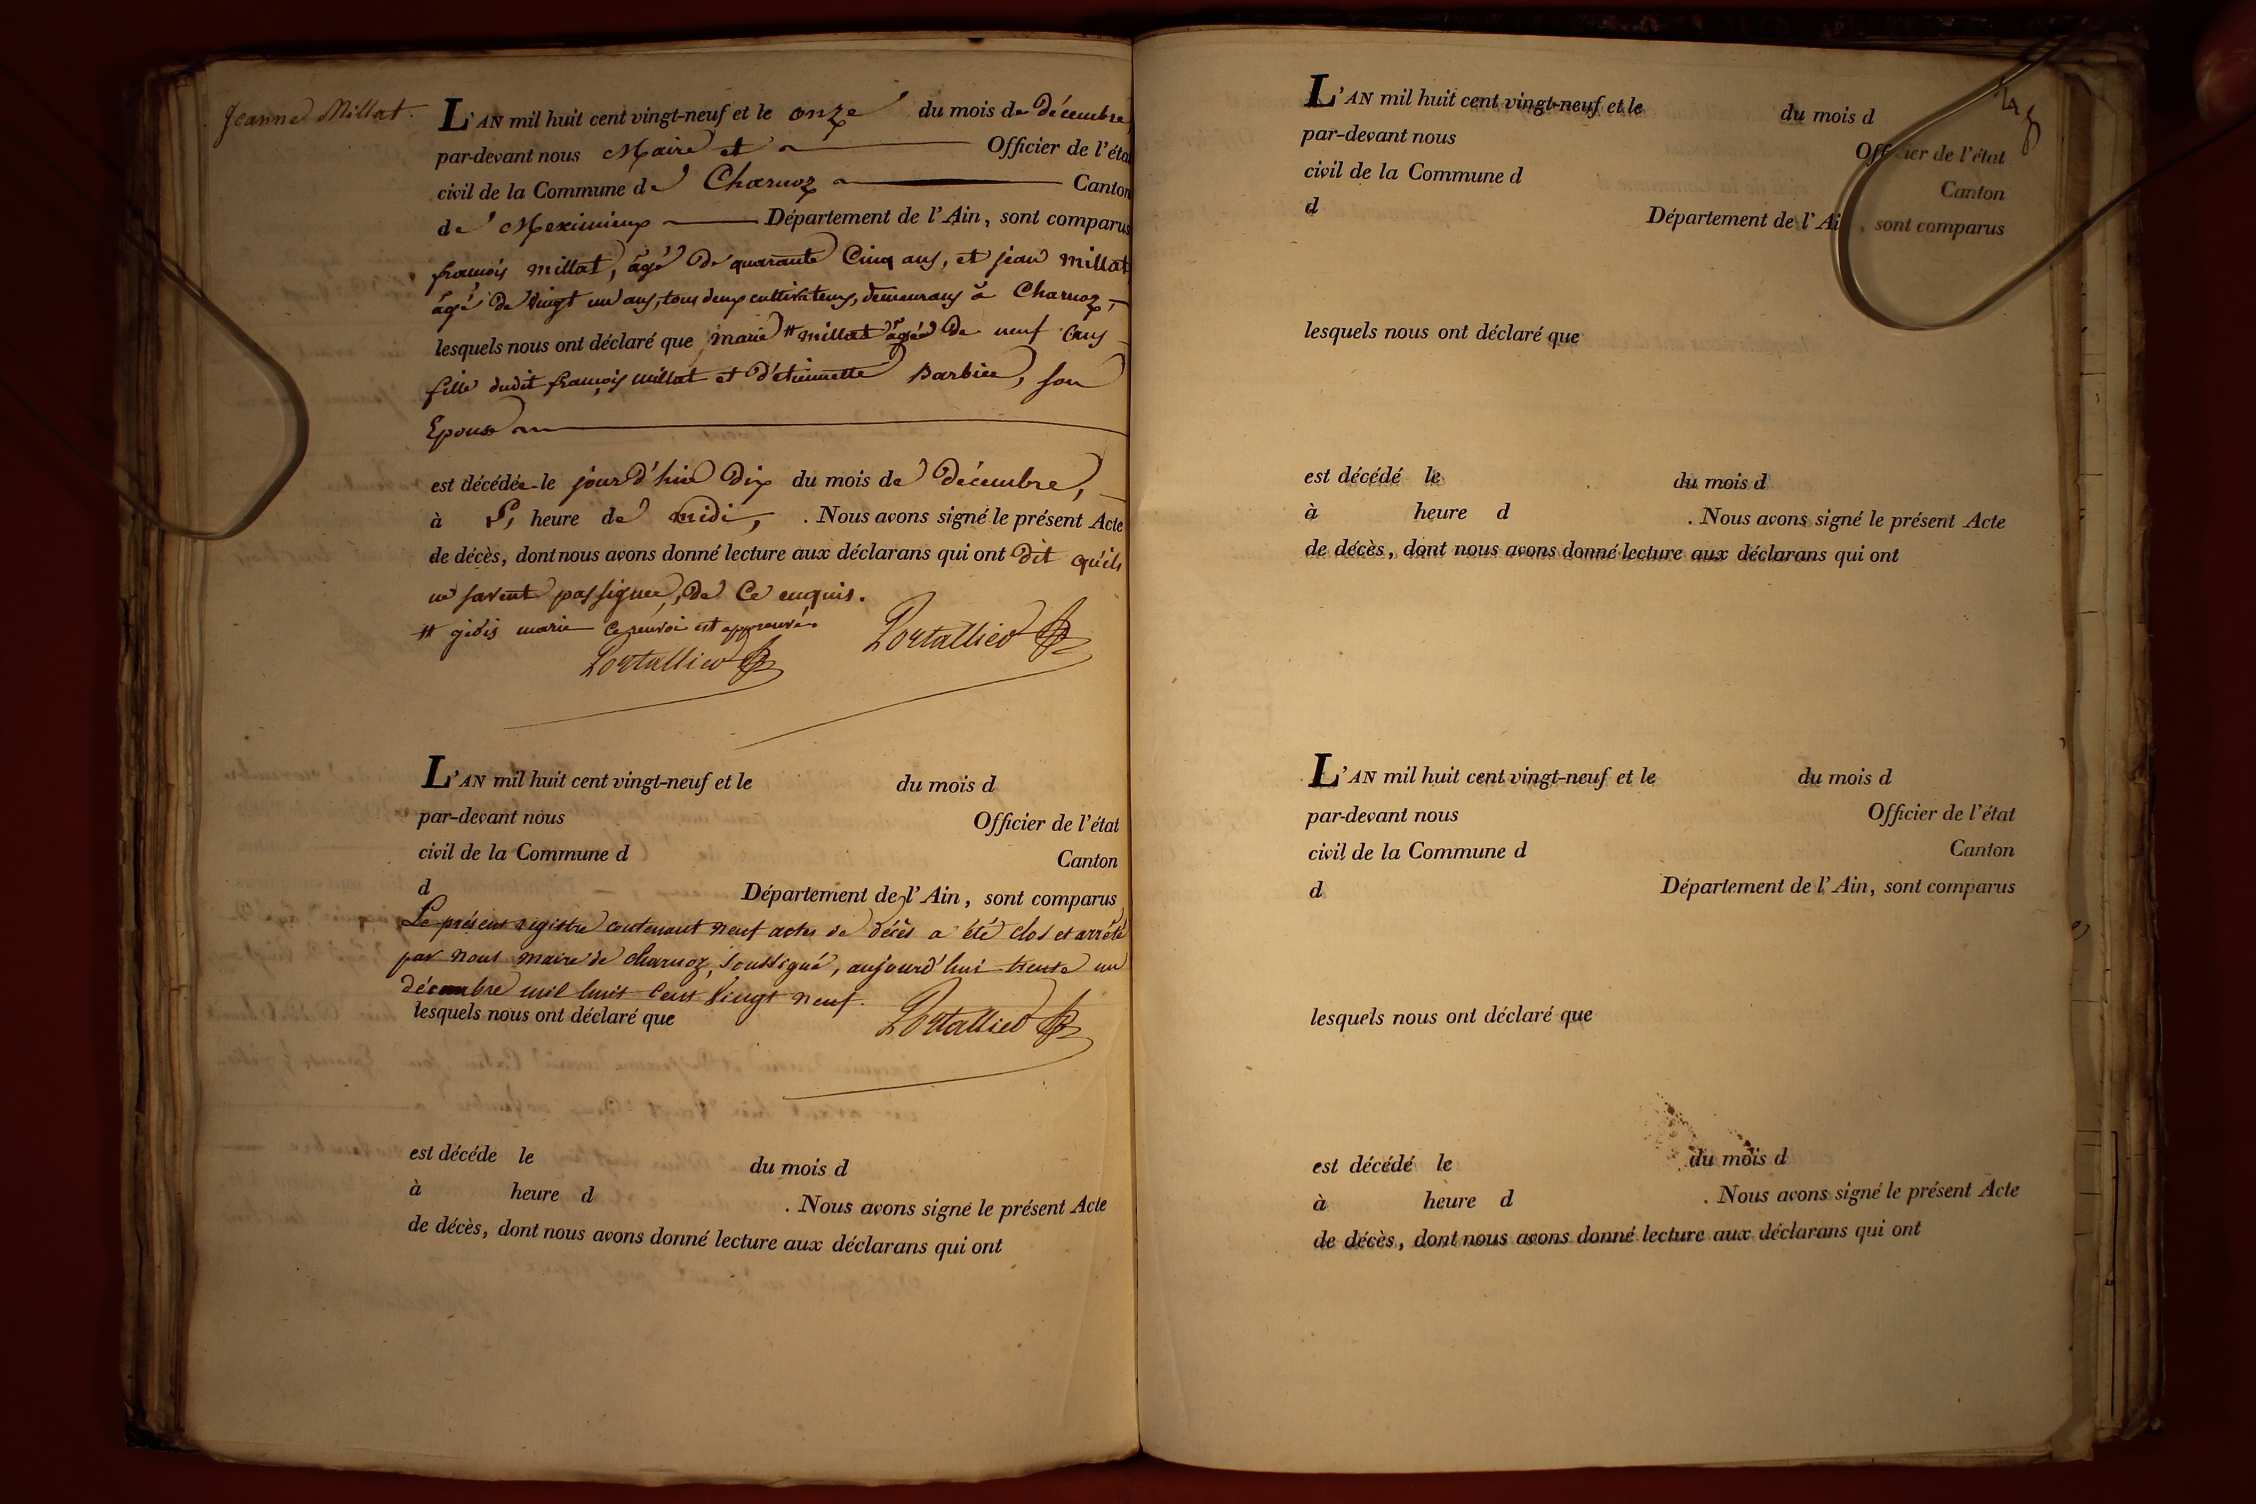 Jeanne Millat.
L'AN mil huit cent vingt-neuf et le onze du mois de décembre
par-devant nous Maire et Officier de l'état
civil de la Commune de Charnoz Canton
de Meximieux Département de l'Ain, sont comparus
françois millat, âgé de quarante Cinq ans, et jean millat
âgé de vingt un ans, tous deux cultivateurs, demeurans à Charnoz,
lesquels nous ont déclaré que marie # millat âgée de neuf ans
fille dudit françois millat et d'étiennette Barbier, son
Epouse
est décédée le jour d'hier dix du mois de décembre,
à L' heure de midi, . Nous avons signé le présent Acte
de décès, dont nous avons donné lecture aux déclarans qui ont dit qu'ils
ne savent pas signer, de Ce enquis.
# marie Ce renvoi est approuvé.
Portallier
Portallier
L'AN mil huit cent vingt-neuf et le du mois d
par-devant nous Officier de l'état
civil de la Commune d Canton
d Département de l'Ain, sont comparus
Le présent registre contenant neuf actes de décès a été clos et arrêté
par nous maire de charnoz, soussigné, aujourd'hui trente un
décembre mil huit Cent vingt neuf.
lesquels nous ont déclaré que
Portallier
est décéde le du mois d
à heure d . Nous avons signé le présent Acte
de décès, dont nous avons donné lecture aux déclarans qui ont
L'AN mil huit cent vingt-neuf et le du mois d
par-devant nous Officier de l'état
civil de la Commune d Canton
d Département de l'Ain, sont comparus
lesquels nous ont déclaré que
est décédé le du mois d
à heure d . Nous avons signé le présent Acte
de décès, dont nous avons donné lecture aux déclarans qui ont
L'AN mil huit cent vingt-neuf et le du mois d
par-devant nous Officier de l'état
civil de la Commune d Canton
d Département de l'Ain, sont comparus
lesquels nous ont déclaré que
est décédé le du mois d
à heure d . Nous avons signé le présent Acte
de décès, dont nous avons donné lecture aux déclarans qui ont